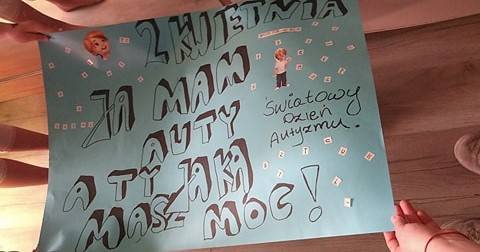 2 KWIETNIA
JA MAM
AUTY
A TY JAKĄ
MASZ MOC!
Światowy
Dzień
Autyzmu.